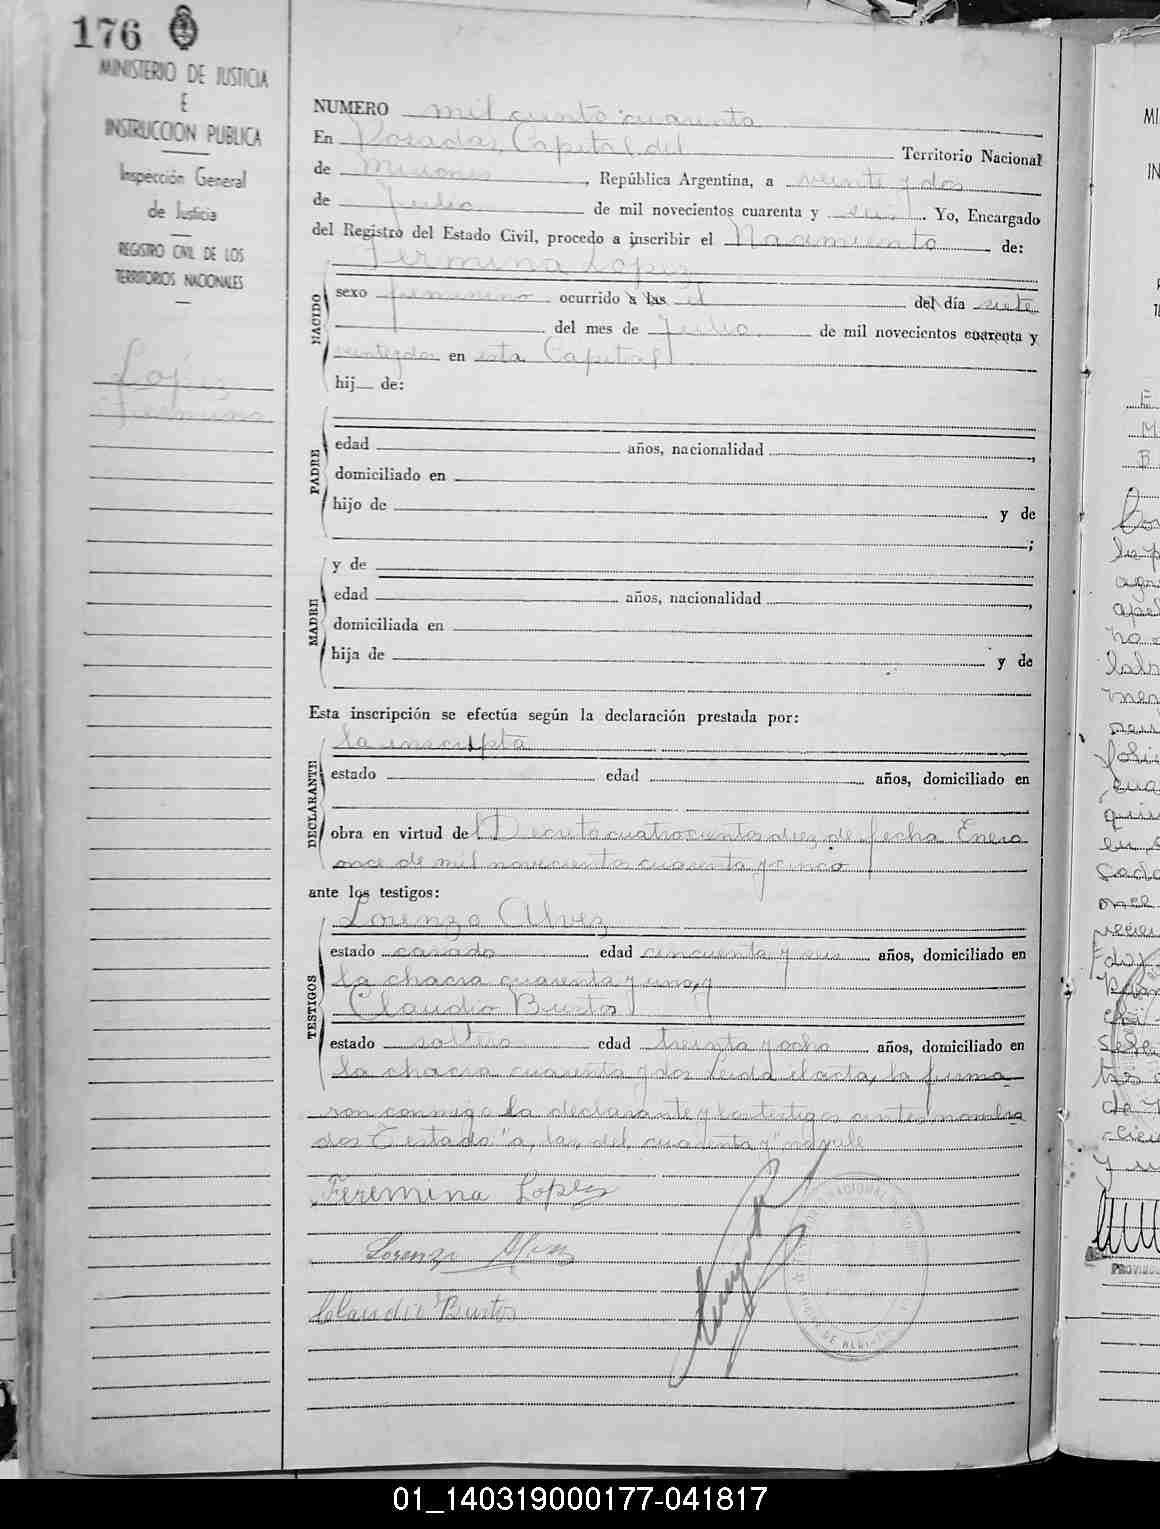 176
MINISTERIO DE JUSTICIA
E
INSTRUCCION PUBLICA
Inspección General
de Justicia
REGISTRO CIVIL DE LOS
TERRITORIOS NACIONALES
López
Fermina
NUMERO mil ciento cuarenta
En Posadas, Capital del Territorio Nacional
de Misiones, República Argentina, a veinte y dos
de Julio de mil novecientos cuarenta y seis. Yo, Encargado
del Registro del Estado Civil, procedo a inscribir el Nacimiento de:
Fermina López
NACIDO
sexo femenino ocurrido a las el del día siete
del mes de Julio de mil novecientos cuarenta y
veintydos en esta Capital
hij de:
PADRE
edad años, nacionalidad ,
domiciliado en
hijo de y de
;
MADRE
y de
edad años, nacionalidad ,
domiciliada en
hija de y de
Esta inscripción se efectúa según la declaración prestada por:
DECLARANTE
la inscripta
estado edad años, domiciliado en
obra en virtud del Decreto cuatrocientos diez de fecha Enero
once de mil novecientos cuarenta y cinco
ante los testigos:
TESTIGOS
Lorenzo Alvez
estado casado edad cincuenta y seis años, domiciliado en
la chacra cuarenta y uno, y
Claudio Bustos
estado soltero edad treinta y ocho años, domiciliado en
la chacra cuarenta y dos Leida el acta, la firma
ron conmigo la declarante y los testigos antes nombra
dos Testado "a, las, del, cuarenta y" no vale
Feremina Lopez
Lorenzo Alvez
Claudio Bustos
01_140319000177-041817